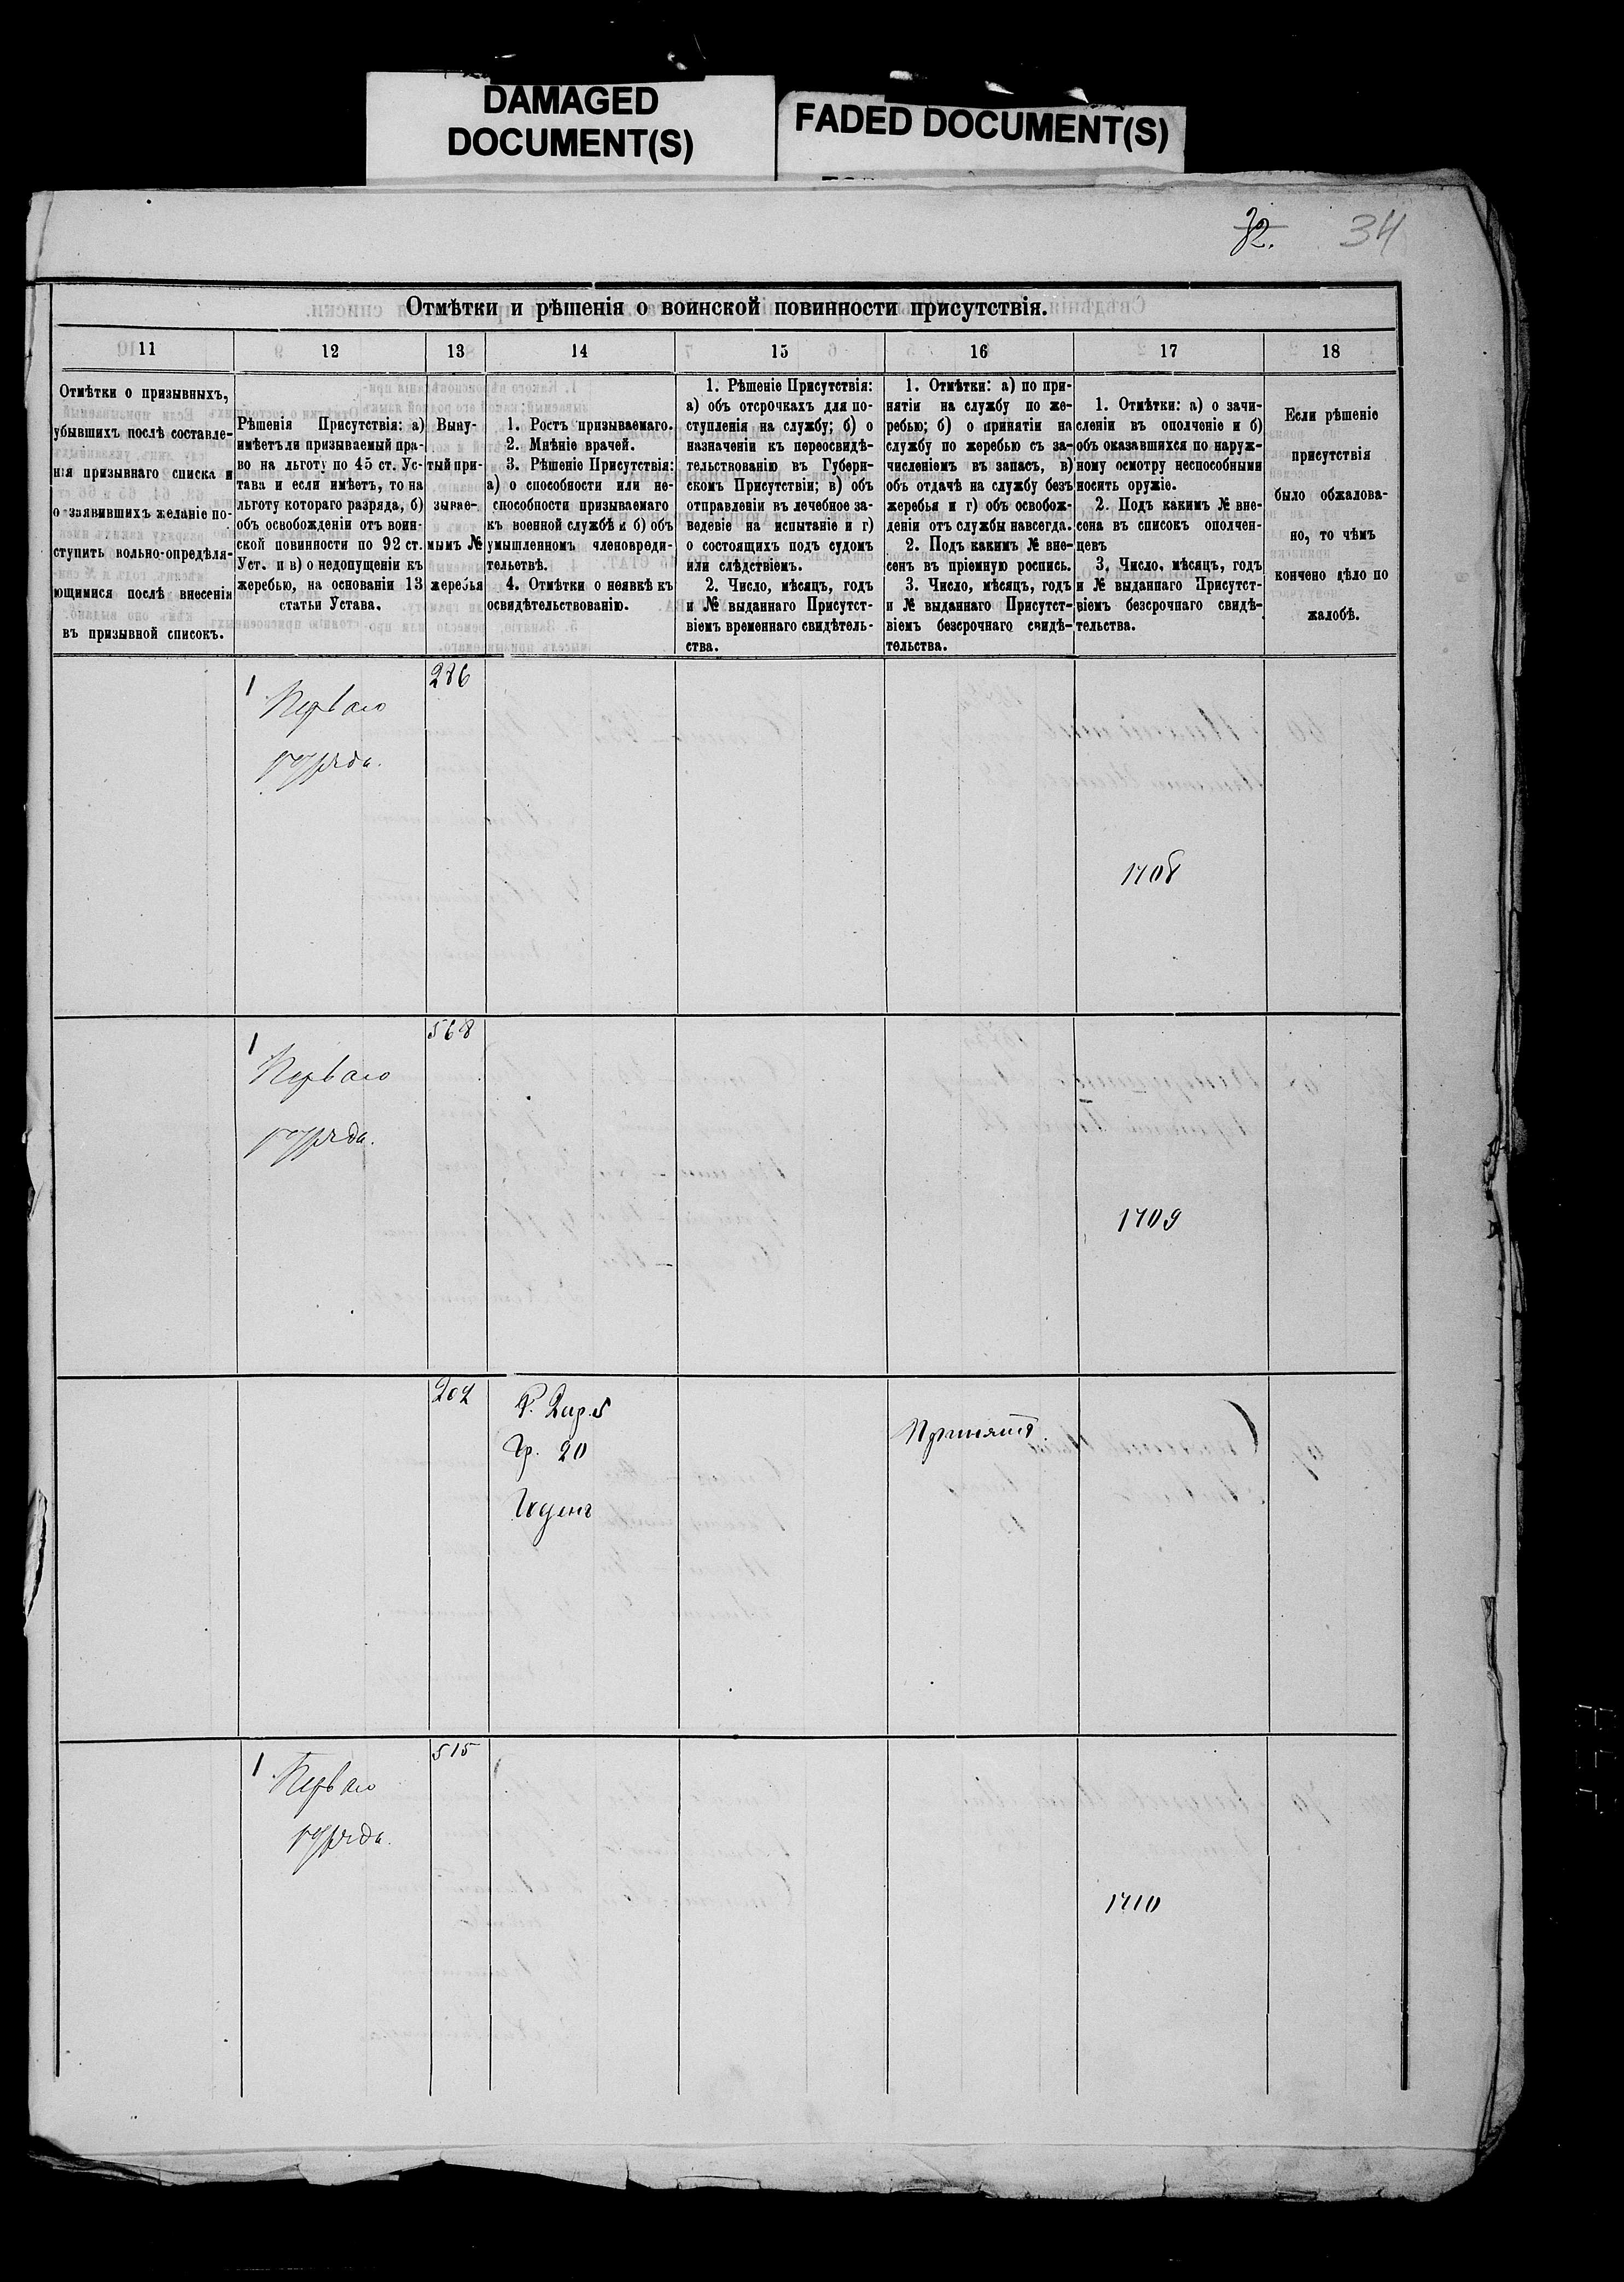 DAMAGED
DOCUMENT(S)
FADED DOCUMENT(S)
32.
34
Отмѣтки и рѣшенія о воинской повинности присутствія.
11
12
13
14
15
16
17
18
Отмѣтки о призывныхъ,
убывшихъ послѣ составле-
нія призывнаго списка и
о заявившихъ желаніе по-
ступить вольно-опредѣля-
ющимися послѣ внесенія
въ призывной списокъ.
Рѣшенія Присутствія: а)
имѣетъ ли призываемый пра-
во на льготу по 45 ст. Ус-
тава и если имѣетъ, то на
льготу котораго разряда, б)
объ освобожденіи отъ воин-
ской повинности по 92 ст.
Уст. и в) о недопущеніи къ
жеребью, на основаніи 13
статьи Устава.
Выну-
тый при-
зывае-
мымъ №
жеребья
1. Ростъ призываемаго.
2. Мнѣніе врачей.
3. Рѣшеніе Присутствія:
а) о способности или не-
способности призываемаго
къ военной службѣ и б) объ
умышленномъ членовреди-
тельствѣ.
4. Отмѣтки о неявкѣ къ
освидѣтельствованію.
1. Рѣшеніе Присутствія:
а) объ отсрочкахъ для по-
ступленія на службу; б) о
назначеніи къ переосвидѣ-
тельствованію въ Губерн-
скомъ Присутствіи; в) объ
отправленіи въ лечебное за-
веденіе на испытаніе и г)
о состоящихъ подъ судомъ
или слѣдствіемъ.
2. Число, мѣсяцъ, годъ
и № выданнаго Присутст-
віемъ временнаго свидѣтель-
ства.
1. Отмѣтки: а) по при-
нятіи на службу по же-
ребью; б) о принятіи на
службу по жеребью съ за-
численіемъ въ запасъ, в)
объ отдачѣ на службу безъ
жеребья и г) объ освобож-
деніи отъ службы навсегда.
2. Подъ какимъ № вне-
сенъ въ пріемную роспись.
3. Число, мѣсяцъ, годъ
и № выданнаго Присутст-
віемъ безсрочнаго свидѣ-
тельства.
1. Отмѣтки: а) о зачи-
сленіи въ ополченіе и б)
объ оказавшихся по наруж-
ному осмотру неспособными
носить оружіе.
2. Подъ какимъ № вне-
сена въ списокъ ополчен-
цевъ
3. Число, мѣсяцъ, годъ
и № выданнаго Присутст-
віемъ безсрочнаго свидѣ-
тельства.
Если рѣшеніе
присутствія
было обжалова-
но, то чѣмъ
кончено дѣло по
жалобѣ.
1
Перваго
разряда.
286
1708
1
Перваго
разряда.
568
1709
202
Р. 2 ар. 5
Гр. 20
Годенъ
Принятъ
1
Перваго
разряда.
515
1710